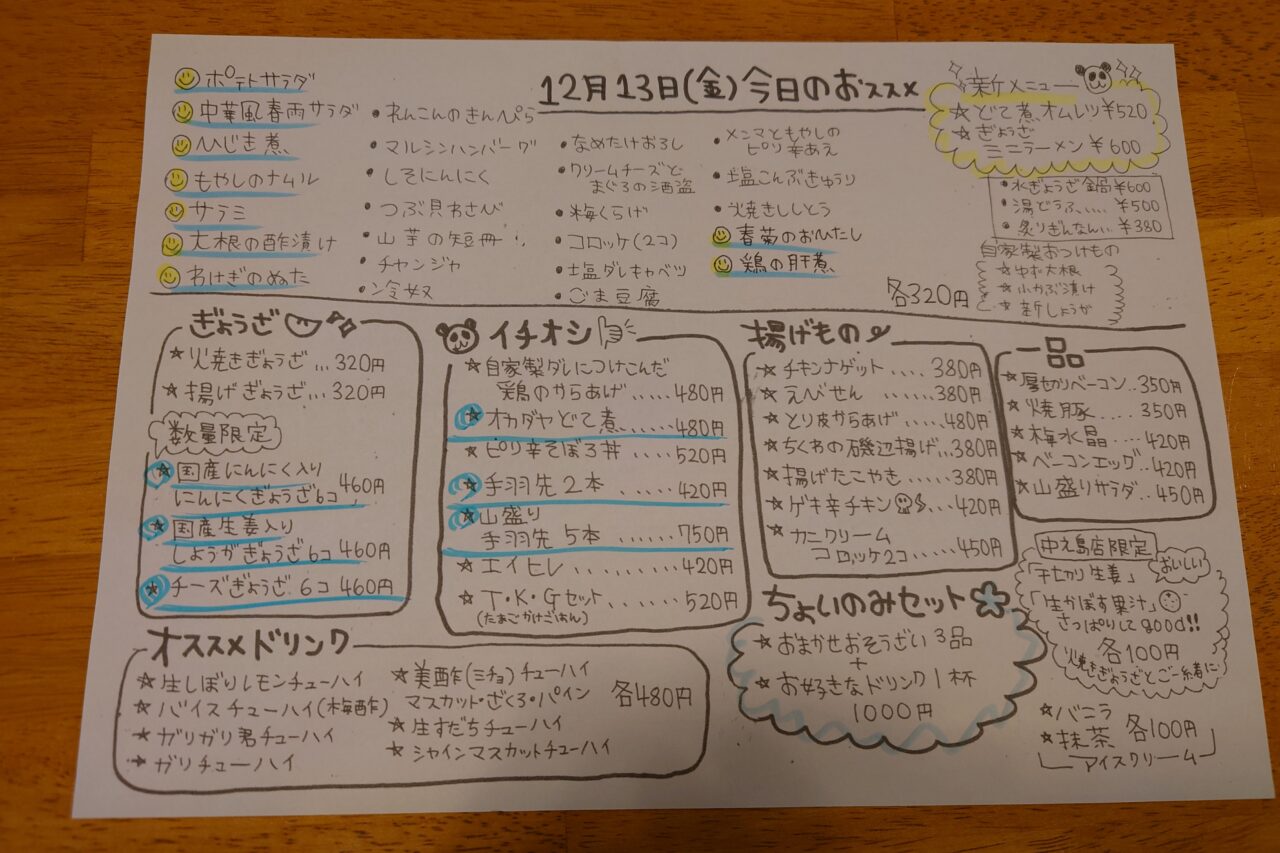 12月13日(金)今日のおススメ
ポテトサラダ
中華風春雨サラダ
ひじき煮
もやしのナムル
サラミ
大根の酢漬け
わけぎのぬた
・れんこんのきんぴら
・マルシンハンバーグ
・しそにんにく
・つぶ貝わさび
・山芋の短冊
・チャンジャ
・冷奴
・なめたけおろし
・クリームチーズと
まぐろの酒盗
・梅くらげ
・コロッケ(2コ)
・塩ダレキャベツ
・ごま豆腐
・メンマともやしの
ピリ辛あえ
・塩こんぶきゅうり
・焼きししとう
春菊のおひたし
鶏の肝煮
各320円
新メニュー
☆どて煮オムレツ¥520
☆ぎょうざ
ミニラーメン ¥600
・水ぎょうざ鍋¥600
・湯どうふ…… ¥500
・炙りぎんなん… ¥380
自家製おつけもの
☆ゆず大根
☆小かぶ漬け
☆新しょうが
ぎょうざ
☆焼きぎょうざ…320円
☆揚げぎょうざ…320円
数量限定
☆国産にんにく入り
にんにくぎょうざ6コ 460円
☆国産生姜入り
しょうがぎょうざ6コ 460円
☆チーズぎょうざ 6コ 460円
イチオシ
☆自家製ダレにつけこんだ
鶏のからあげ……480円
☆オカダヤどて煮……480円
☆ピリ辛そぼろ丼……520円
☆手羽先2本……420円
☆山盛り
手羽先 5本……750円
☆エイヒレ………420円
☆T・K・Gセット……520円
(たまごかけごはん)
揚げもの
☆チキンナゲット……380円
☆えびせん……380円
☆とり皮からあげ…480円
☆ちくわの磯辺揚げ…380円
☆揚げたこやき……380円
☆ゲキ辛チキン…420円
☆カニクリーム
コロッケ2コ……450円
一品
☆厚切りベーコン..350円
☆焼豚....350円
☆梅水晶....420円
☆ベーコンエッグ..420円
☆山盛りサラダ..450円
オススメドリンク
☆生しぼりレモンチューハイ
☆バイスチューハイ(梅酢)
☆ガリガリ君チューハイ
☆ガリチューハイ
☆美酢(ミチョ)チューハイ
マスカット・ざくろ・パイン
☆生すだちチューハイ
☆シャインマスカットチューハイ
各480円
ちょいのみセット
☆おまかせおそうざい3品
+
☆お好きなドリンク1杯
1000円
中之島店限定
「千切り生姜」おいしい
「生かぼす果汁」
さっぱりしてgood!!
各100円
焼きぎょうざとご一緒に
☆バニラ
☆抹茶 各100円
アイスクリーム